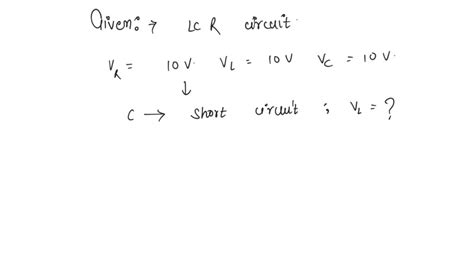 Given:→ LCR circuit.
V_R = 10 V. V_L = 10 V V_C = 10 V.
↓
C → short circuit ; V_L = ?